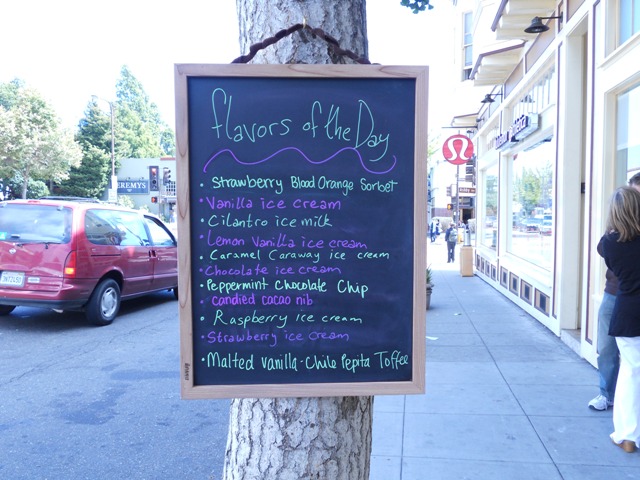 flavors of the Day
• Strawberry Blood Orange Sorbet
• Vanilla ice cream
• Cilantro ice milk
• Lemon Vanilla ice cream
• Caramel Caraway ice cream
• Chocolate ice cream
• Peppermint Chocolate Chip
• candied cacao nib
• Raspberry ice cream
• Strawberry ice cream
• Malted vanilla - Chile Pepita Toffee
JEREMYS